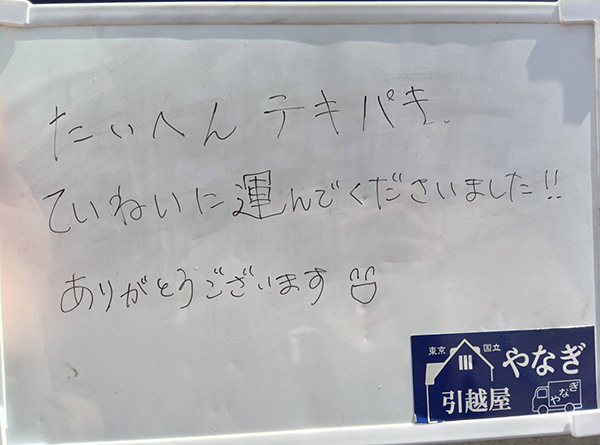 たいへんテキパキ、
ていねいに運んでくださいました!!
ありがとうございます
東京 国立 やなぎ
引越屋
やなぎ